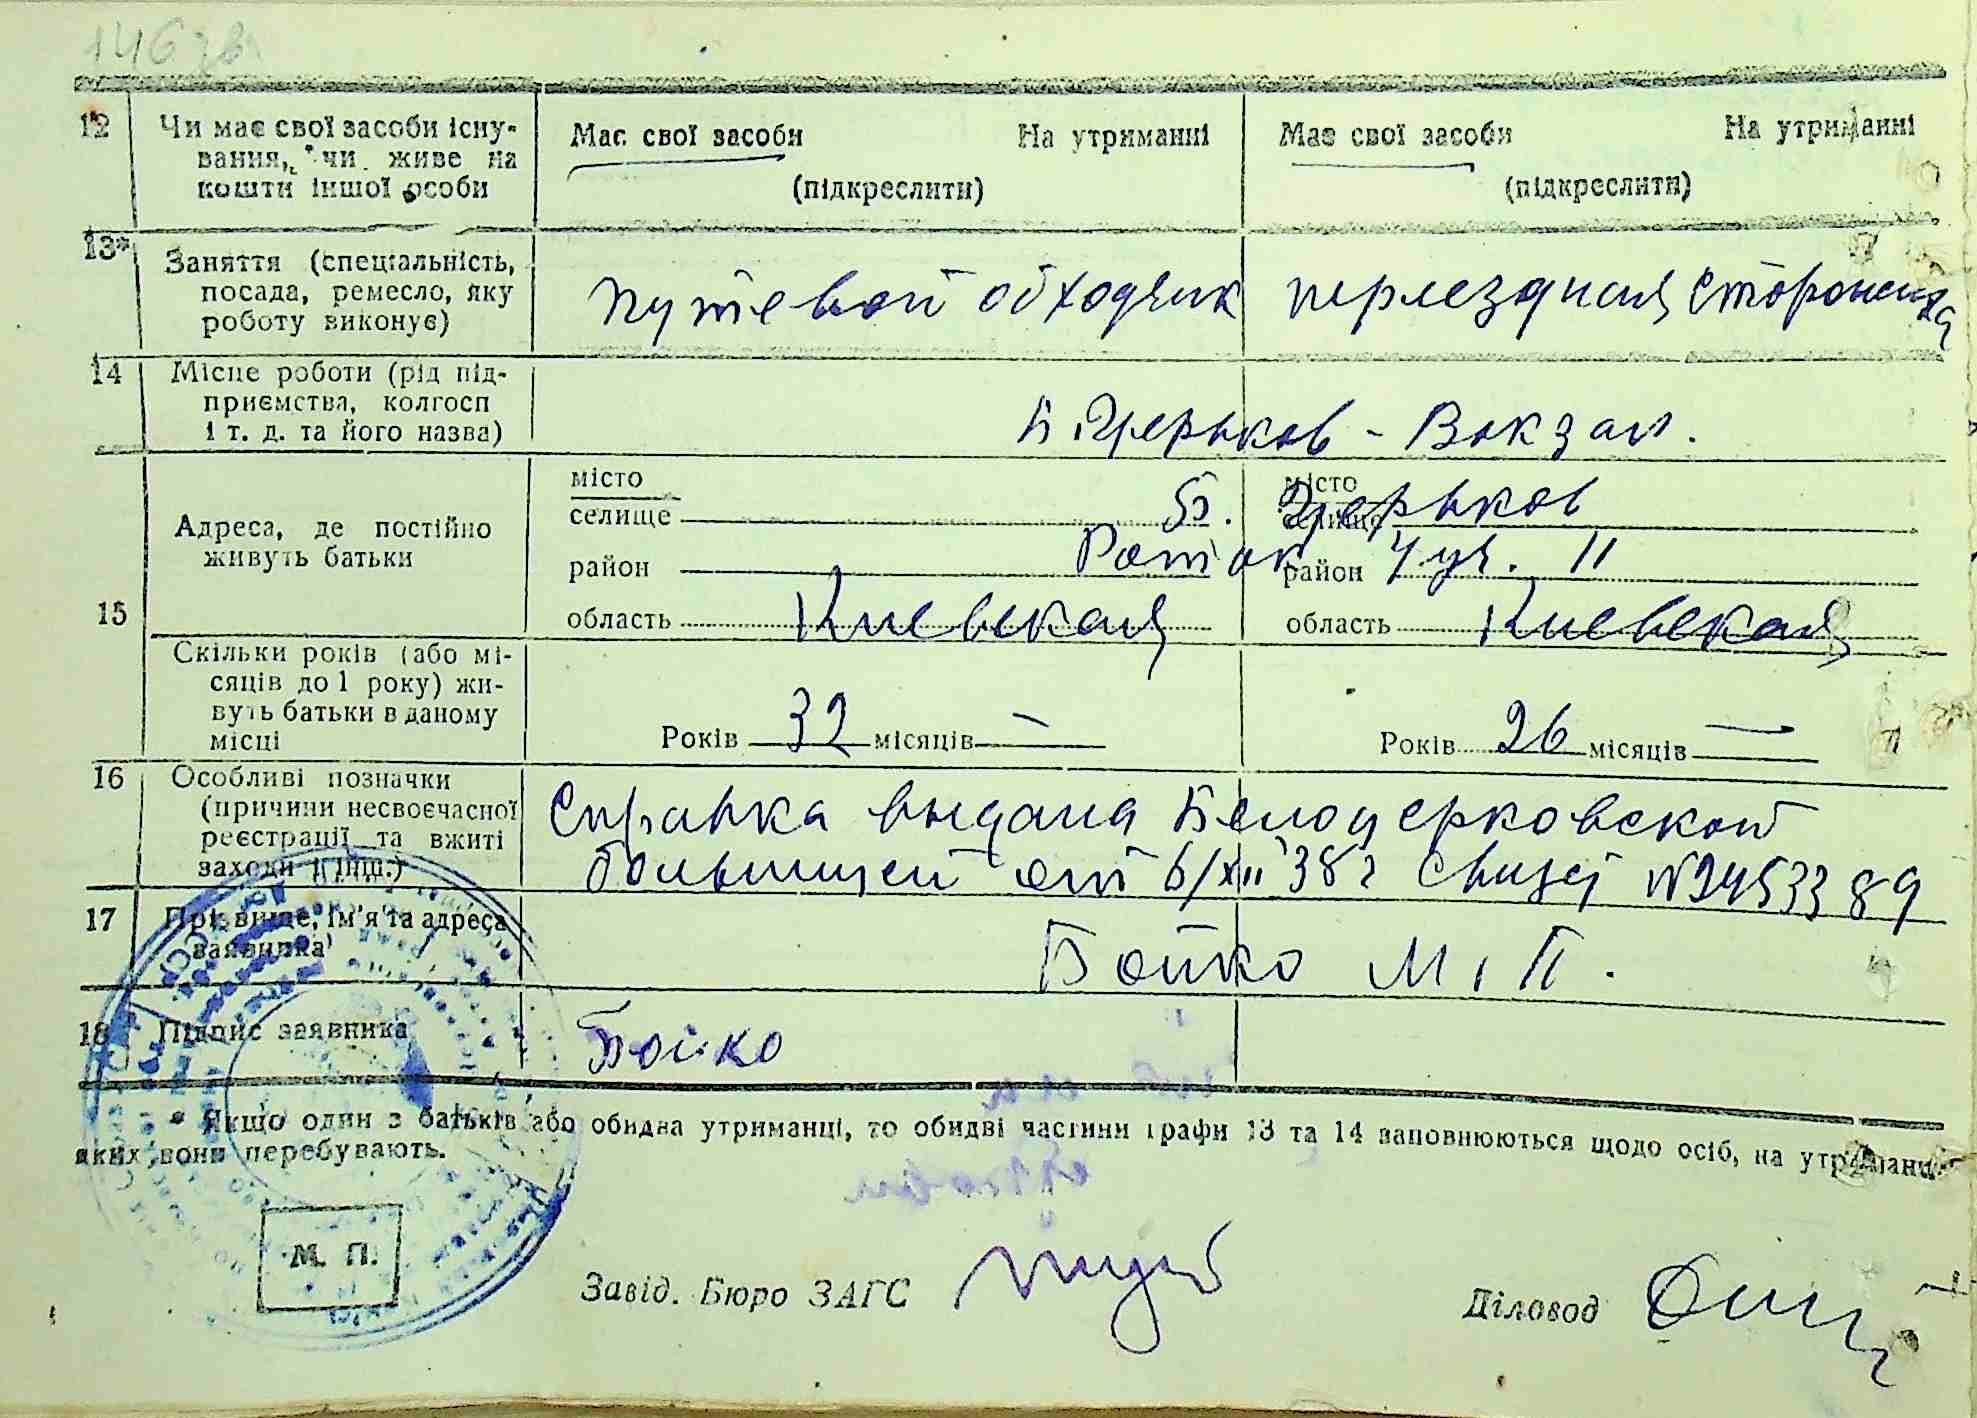 146 зв
12 Чи має свої засоби існу- Має свої засоби На утриманні Має свої засоби На утриманні
вання, чи живе на
кошти іншої особи (підкреслити) (підкреслити)
13* Заняття (спеціальність,
посада, ремесло, яку путевой обходчик переездная сторожиха
роботу виконує)
14 Місце роботи (рід під-
приємства, колгосп Б. Церьков - Вокзал.
і т. д. та його назва)
місто місто
селище Б. Церьков селище
Адреса, де постійно
живуть батьки район 4 уч. 11 район
15 область Киевская область Киевская
Скільки років (або мі-
сяців до 1 року) жи-
вуть батьки в даному
місці Років 32 місяців — Років 26 місяців —
16 Особливі позначки
(причини несвоєчасної Справка выдана Белоцерковской
реєстрації та вжиті
заходи й інш.) больницей от 6/XII 38 г № 2453389
17 Прізвище, ім'я та адреса
заявника Бойко М. П.
18 Підпис заявника Бойко
* Якщо один з батьків або обидва утриманці, то обидві частини графи 13 та 14 заповнюються щодо осіб, на утриманні
яких вони перебувають.
М. П.
Завід. Бюро ЗАГС Діловод